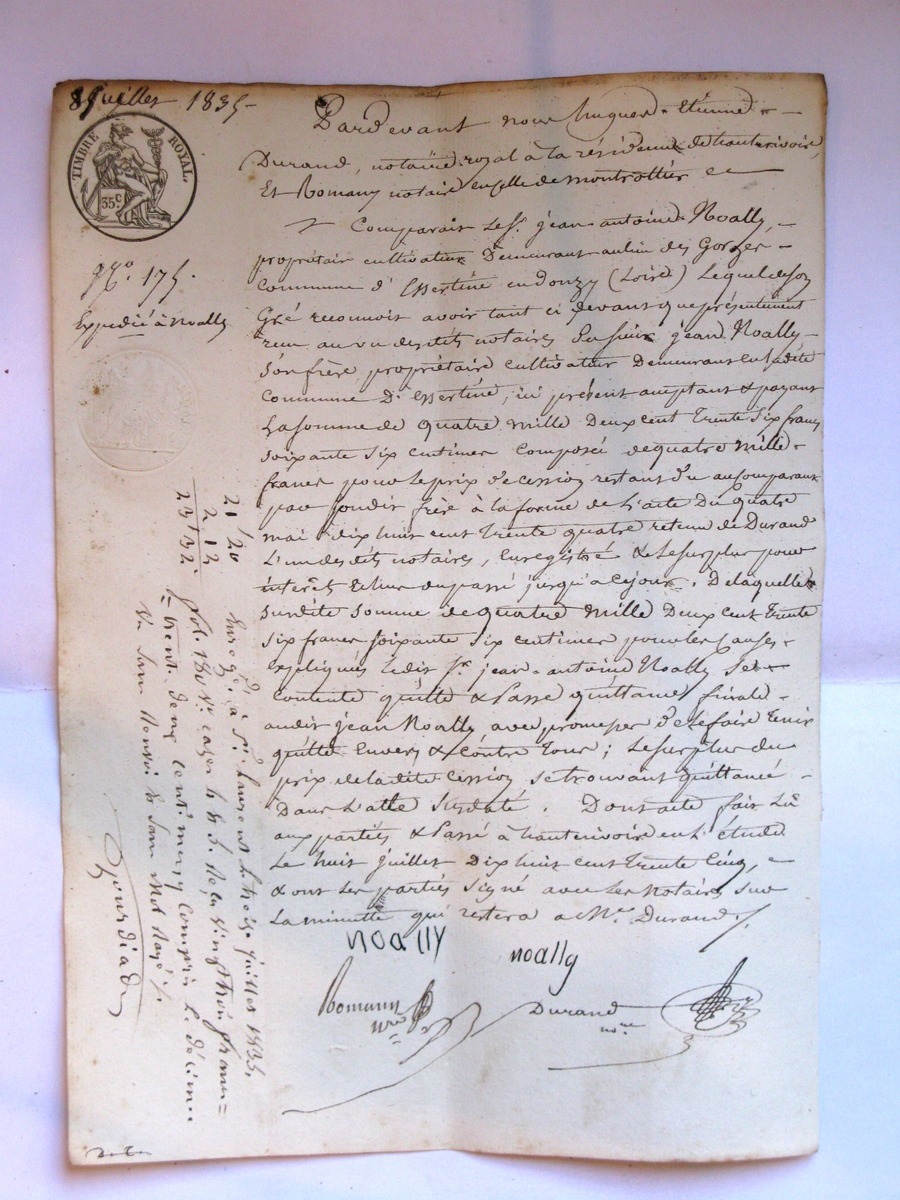 8 Juillet 1835
TIMBRE ROYAL
35 c.
No 175.
Expedié à Noally
Pardevant nous hugues Etienne
Durand, notaire royal à la résidence de hauterivoire,
Et Romany notaire en celle de montrottier
Comparait Le Sr. jean antoine Noally,
propriétaire cultivateur Demeurant au lieu des Gorges
Commune d'Essertine en donzy (Loire) Lequel de son
Gré reconnoit avoir tant ci devant que présentement
reçu au vu desdits notaires Du sieur jean Noally
Son frère propriétaire cultivateur Demeurant en la dite
Commune D'essertine, ici présent acceptant & payant
La somme de quatre mille Deux cent trente six francs
soixante six centimes Composée de quatre mille
francs pour le prix de Cession restant du au Comparant
par Son dit frère à la forme de L'acte Du quatre
mai dix huit cent trente quatre retenu de Durand
L'un desdits notaires, Enregistré & Le surplus pour
intérêts Echus du passé jusqu'a Ce jour. De laquelle
susdite somme de quatre mille Deux cent trente
six francs soixante six centimes pour les Causes
Expliquées Ledit Sr. jean antoine Noally Se
Contente quitte & Passe quittance finale
audit jean Noally avec promesse de le faire tenir
quitte Envers & Contre tous; Le surplus du
prix de ladite Cession se trouvant quittancé
Dans L'acte Susdaté. Dont acte fait Lû
aux parties & Passé à hauterivoire en L'étude
Le huit juillet Dix huit cent trente Cinq,
& ont Les parties signé avec Les Notaires sur
La minutte qui restera a Me. Durand
noally
noally
Romany nre
Durand nore
21 /20
2 12
23 32
Enreg. à St. Laurent Le treize juillet 1835.
fol. 180 Vo. cases 4 & 5. Reçu vingt trois francs
trente deux centimes compris Le décime
Un Livre Renvoi & Sans Mot Rayé
Gourdiat